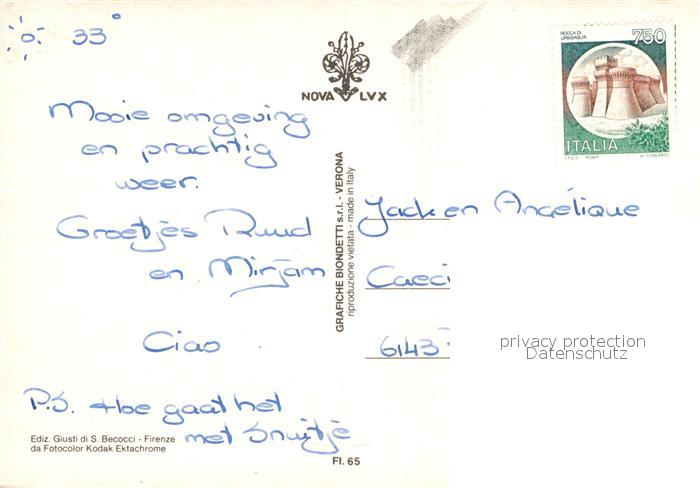 33°
Mooie omgeving
en prachtig
weer.
Groetjes Ruud
en Mirjam
Ciao
P.S. Hoe gaat het
met Snuitje
Ediz. Giusti di S. Becocci - Firenze
da Fotocolor Kodak Ektachrome
NOVA LVX
GRAFICHE BIONDETTI s.r.l. - VERONA
riproduzione vietata - made in Italy
FI. 65
ROCCA DI
URBISAGLIA
750
ITALIA
I.P.Z.S. ROMA
Jack en Angélique
Caeci
6143
privacy protection
Datenschutz